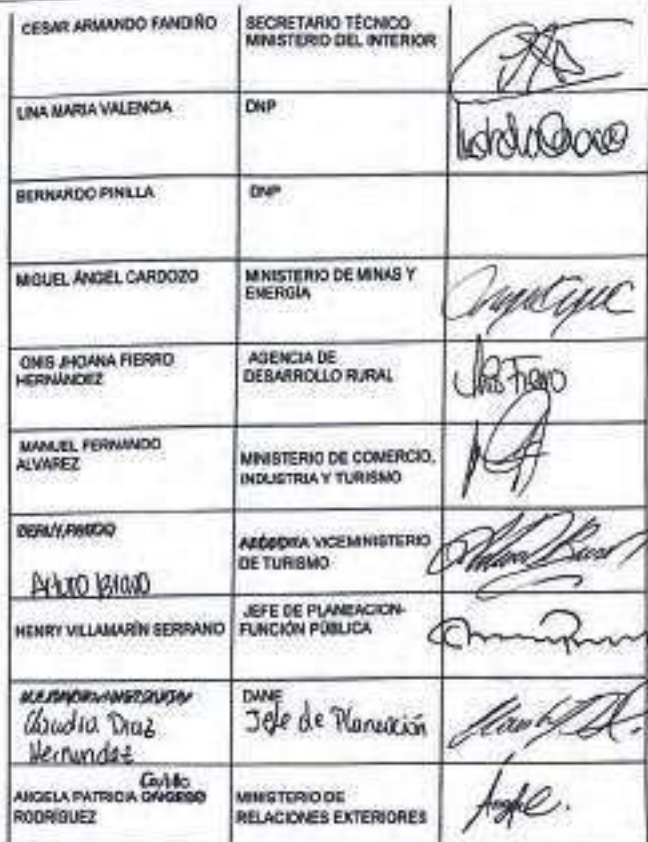 CESAR ARMANDO FANDIÑO
SECRETARIO TÉCNICO
MINISTERIO DEL INTERIOR
LINA MARIA VALENCIA
DNP
BERNARDO PINILLA
DNP
MIGUEL ÁNGEL CARDOZO
MINISTERIO DE MINAS Y
ENERGÍA
ONIS JHOANA FIERRO
HERNÁNDEZ
AGENCIA DE
DESARROLLO RURAL
MANUEL FERNANDO
ALVAREZ
MINISTERIO DE COMERCIO,
INDUSTRIA Y TURISMO
Arturo Bravo
VICEMINISTERIO
DE TURISMO
HENRY VILLAMARÍN SERRANO
JEFE DE PLANEACION-
FUNCIÓN PÚBLICA
Claudia Diaz
Hernandez
DANE
Jefe de Planeación
ANGELA PATRICIA
RODRÍGUEZ
MINISTERIO DE
RELACIONES EXTERIORES